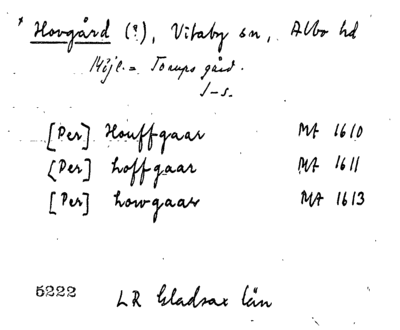 * Hovgård (?), Vitaby sn, Albo hd
Möjl. = Torups gård.
J-s.
[Per] Houffgaar MA 1610
[Per] hoffgaar MA 1611
[Per] howgaar MA 1613
5222 LR Gladsax län